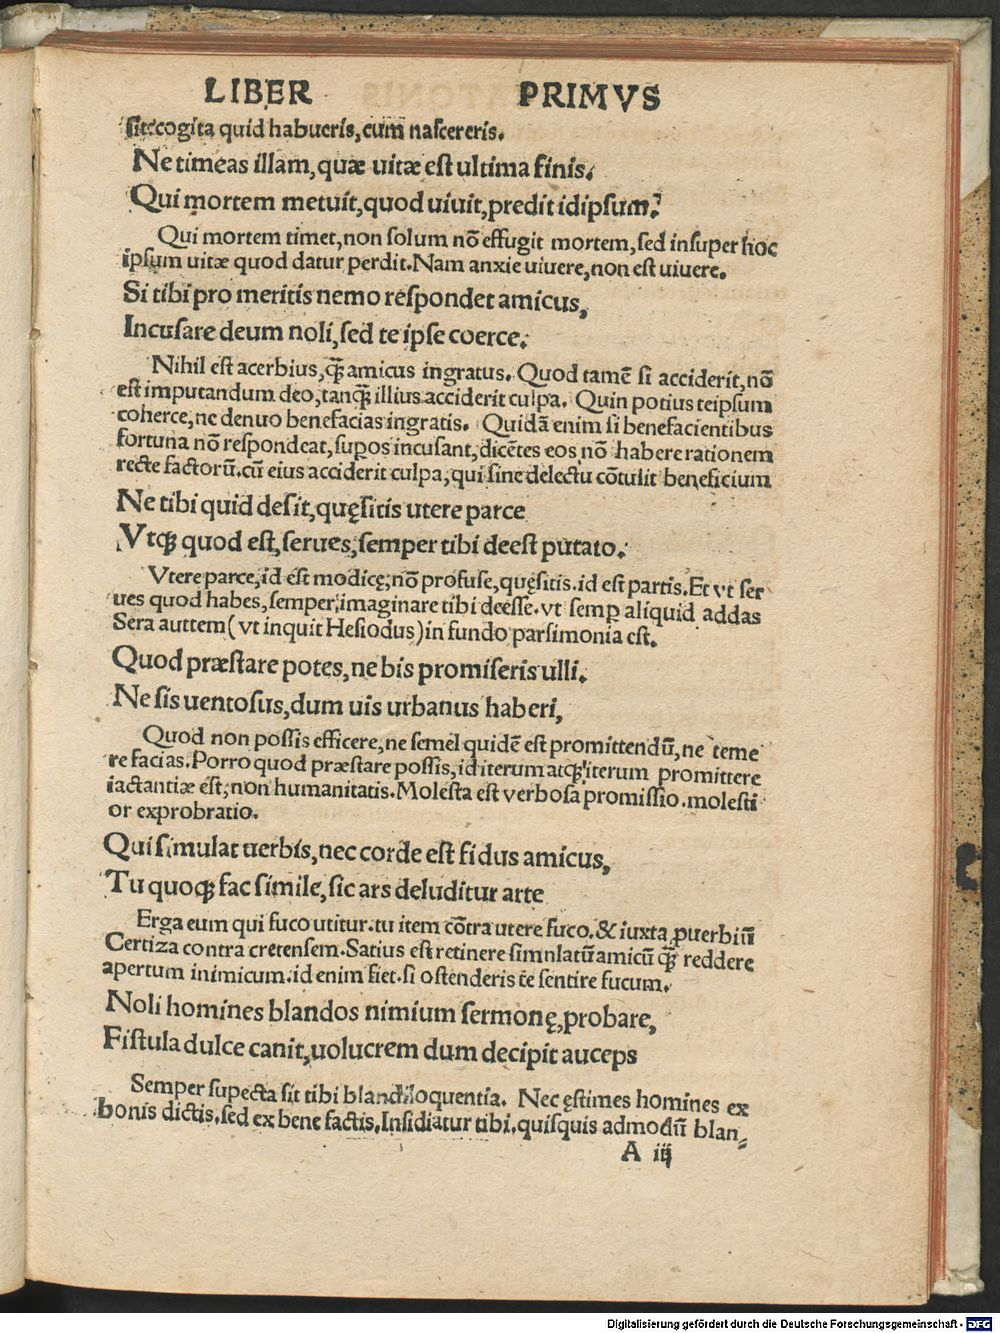 LIBER PRIMVS
sit: cogita quid habueris, cum nascereris.
Ne timeas illam, quæ uitæ est ultima finis,
Qui mortem metuit, quod uiuit, predit idipsum.
Qui mortem timet, non solum nō effugit mortem, sed insuper hoc
ipsum uitæ quod datur perdit. Nam anxie uiuere, non est uiuere.
Si tibi pro meritis nemo respondet amicus,
Incusare deum noli, sed te ipse coerce.
Nihil est acerbius, q̄ꝫ amicus ingratus. Quod tamē si acciderit, nō
est imputandum deo, tanq̄ꝫ illius acciderit culpa. Quin potius teipsum
coherce, ne denuo benefacias ingratis. Quidā enim si benefacientibus
fortuna nō respondeat, suꝑos incusant, dicētes eos nō habere rationem
recte factorū. cū eius acciderit culpa, qui sine delectu cōtulit beneficium
Ne tibi quid desit, quęsitis utere parce
Vtqꝫ quod est, serues, semper tibi deest putato.
Vtere parce, id est modicę, nō profuse, quęsitis. id est partis. Et vt ser
ues quod habes, semper imaginare tibi deesse. vt semꝑ aliquid addas
Sera auttem (vt inquit Hesiodus) in fundo parsimonia est.
Quod præstare potes, ne bis promiseris ulli.
Ne sis uentosus, dum uis urbanus haberi,
Quod non possis efficere, ne semel quidē est promittendū, ne teme
re facias. Porro quod præstare possis, id iterum atqꝫ iterum promittere
iactantiæ est, non humanitatis. Molesta est verbosa promissio. molesti
or exprobratio.
Qui simulat uerbis, nec corde est fidus amicus,
Tu quoqꝫ fac simile, sic ars deluditur arte
Erga eum qui fuco utitur. tu item cōtra utere fuco. & iuxta ꝓuerbiū
Certiza contra cretensem. Satius est retinere simnlatū amicū q̄ꝫ reddere
apertum inimicum. id enim fiet. si ostenderis te sentire fucum.
Noli homines blandos nimium sermonę, probare,
Fistula dulce canit, uolucrem dum decipit auceps
Semper supecta sit tibi blandiloquentia. Nec ęstimes homines ex
bonis dictis, sed ex bene factis. Insidiatur tibi, quisquis admodū blan⸗
A iij
Digitalisierung gefördert durch die Deutsche Forschungsgemeinschaft - DFG